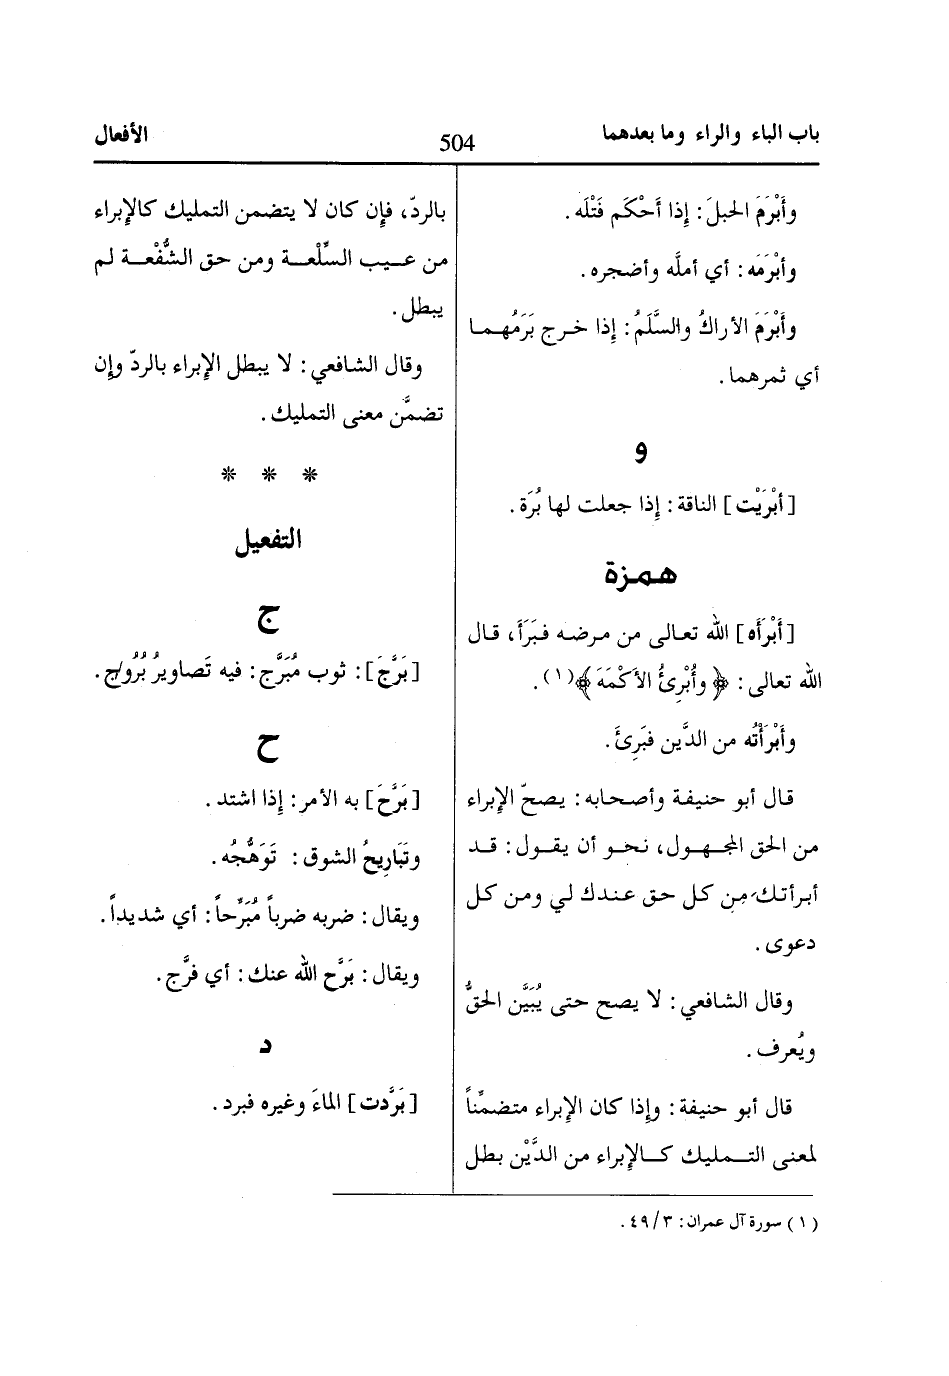 باب الباء والراء وما بعدهما
504
الأفعال
وأَبْرَمَ الحبلَ: إِذا أَحْكَم فَتْلَه.
وأَبْرَمَه: أي أملَّه وأضجره.
وأَبْرَمَ الأراكُ والسَّلَمُ: إِذا خرج بَرَمُهما
أي ثمرهما.
و
[أَبْرَيْت] الناقة: إِذا جعلت لها بُرَة.
همزة
[أَبْرَأه] الله تعالى من مرضه فبَرَأَ، قال
الله تعالى: ﴿وأُبْرِئُ الأكْمَهَ﴾(١).
وأَبْرَأْتُه من الدَّين فبَرِئَ.
قال أبو حنيفة وأصحابه: يصحّ الإِبراء
من الحق المجهول، نحو أن يقول: قد
أبرأتك مِن كل حق عندك لي ومن كل
دعوى.
وقال الشافعي: لا يصح حتى يُبَيَّن الحقُّ
ويُعرف.
قال أبو حنيفة: وإِذا كان الإِبراء متضمِّناً
لمعنى التمليك كالإِبراء من الدَّيْن بطل
بالردّ، فإِن كان لا يتضمن التمليك كالإِبراء
من عيب السِّلْعة ومن حق الشُّفْعة لم
يبطل.
وقال الشافعي: لا يبطل الإِبراء بالردّ وإِن
تضمَّن معنى التمليك.
* * *
التفعيل
ج
[بَرَّجَ]: ثوب مُبَرَّج: فيه تَصاويرُ بُرُوج.
ح
[بَرَّحَ] به الأمر: إِذا اشتد.
وتَبَارِيحُ الشوق: تَوَهُّجُه.
ويقال: ضربه ضرباً مُبَرِّحاً: أي شديداً.
ويقال: بَرَّح الله عنك: أي فرَّج.
د
[بَرَّدت] الماءَ وغيره فبرد.
(١) سورة آل عمران: ٣/٤٩.